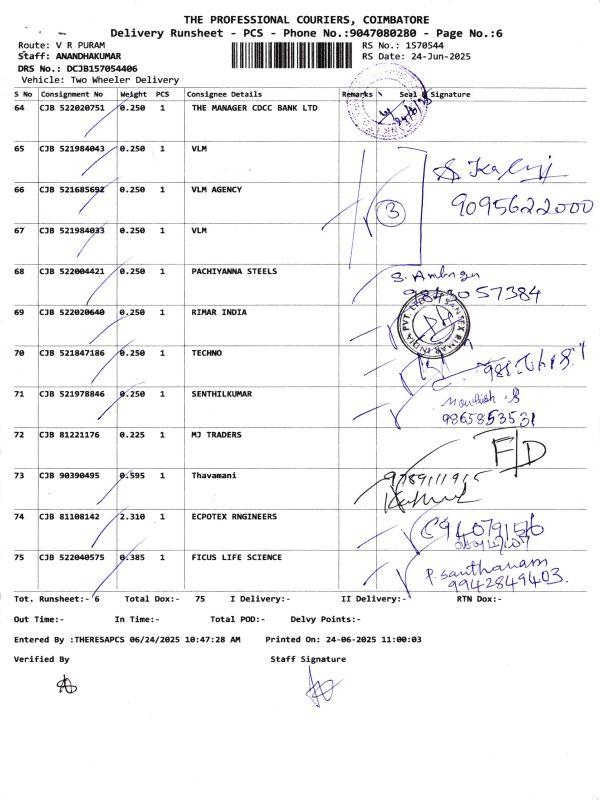 THE PROFESSIONAL COURIERS, COIMBATORE
Delivery Runsheet - PCS - Phone No.:9047080280 - Page No.:6
Route: V R PURAM RS No.: 1570544
Staff: ANANDHAKUMAR RS Date: 24-Jun-2025
DRS No.: DCJB157054406
Vehicle: Two Wheeler Delivery
S No Consignment No Weight PCS Consignee Details Remarks Seal & Signature
64 CJB 522020751 0.250 1 THE MANAGER CDCC BANK LTD
65 CJB 521984043 0.250 1 VLM
66 CJB 521685692 0.250 1 VLM AGENCY
3
9095622000
67 CJB 521984033 0.250 1 VLM
68 CJB 522004421 0.250 1 PACHIYANNA STEELS
9843057384
69 CJB 522020640 0.250 1 RIMAR INDIA
70 CJB 521847186 0.250 1 TECHNO
71 CJB 521978846 0.250 1 SENTHILKUMAR
9865853531
72 CJB 81221176 0.225 1 MJ TRADERS
F/D
73 CJB 90390495 0.595 1 Thavamani
74 CJB 81108142 2.310 1 ECPOTEX RNGINEERS
75 CJB 522040575 0.385 1 FICUS LIFE SCIENCE
P. Santhanam
9942849403.
Tot. Runsheet:- 6 Total Dox:- 75 I Delivery:- II Delivery:- RTN Dox:-
Out Time:- In Time:- Total POD:- Delvy Points:-
Entered By :THERESAPCS 06/24/2025 10:47:28 AM Printed On: 24-06-2025 11:00:03
Verified By Staff Signature